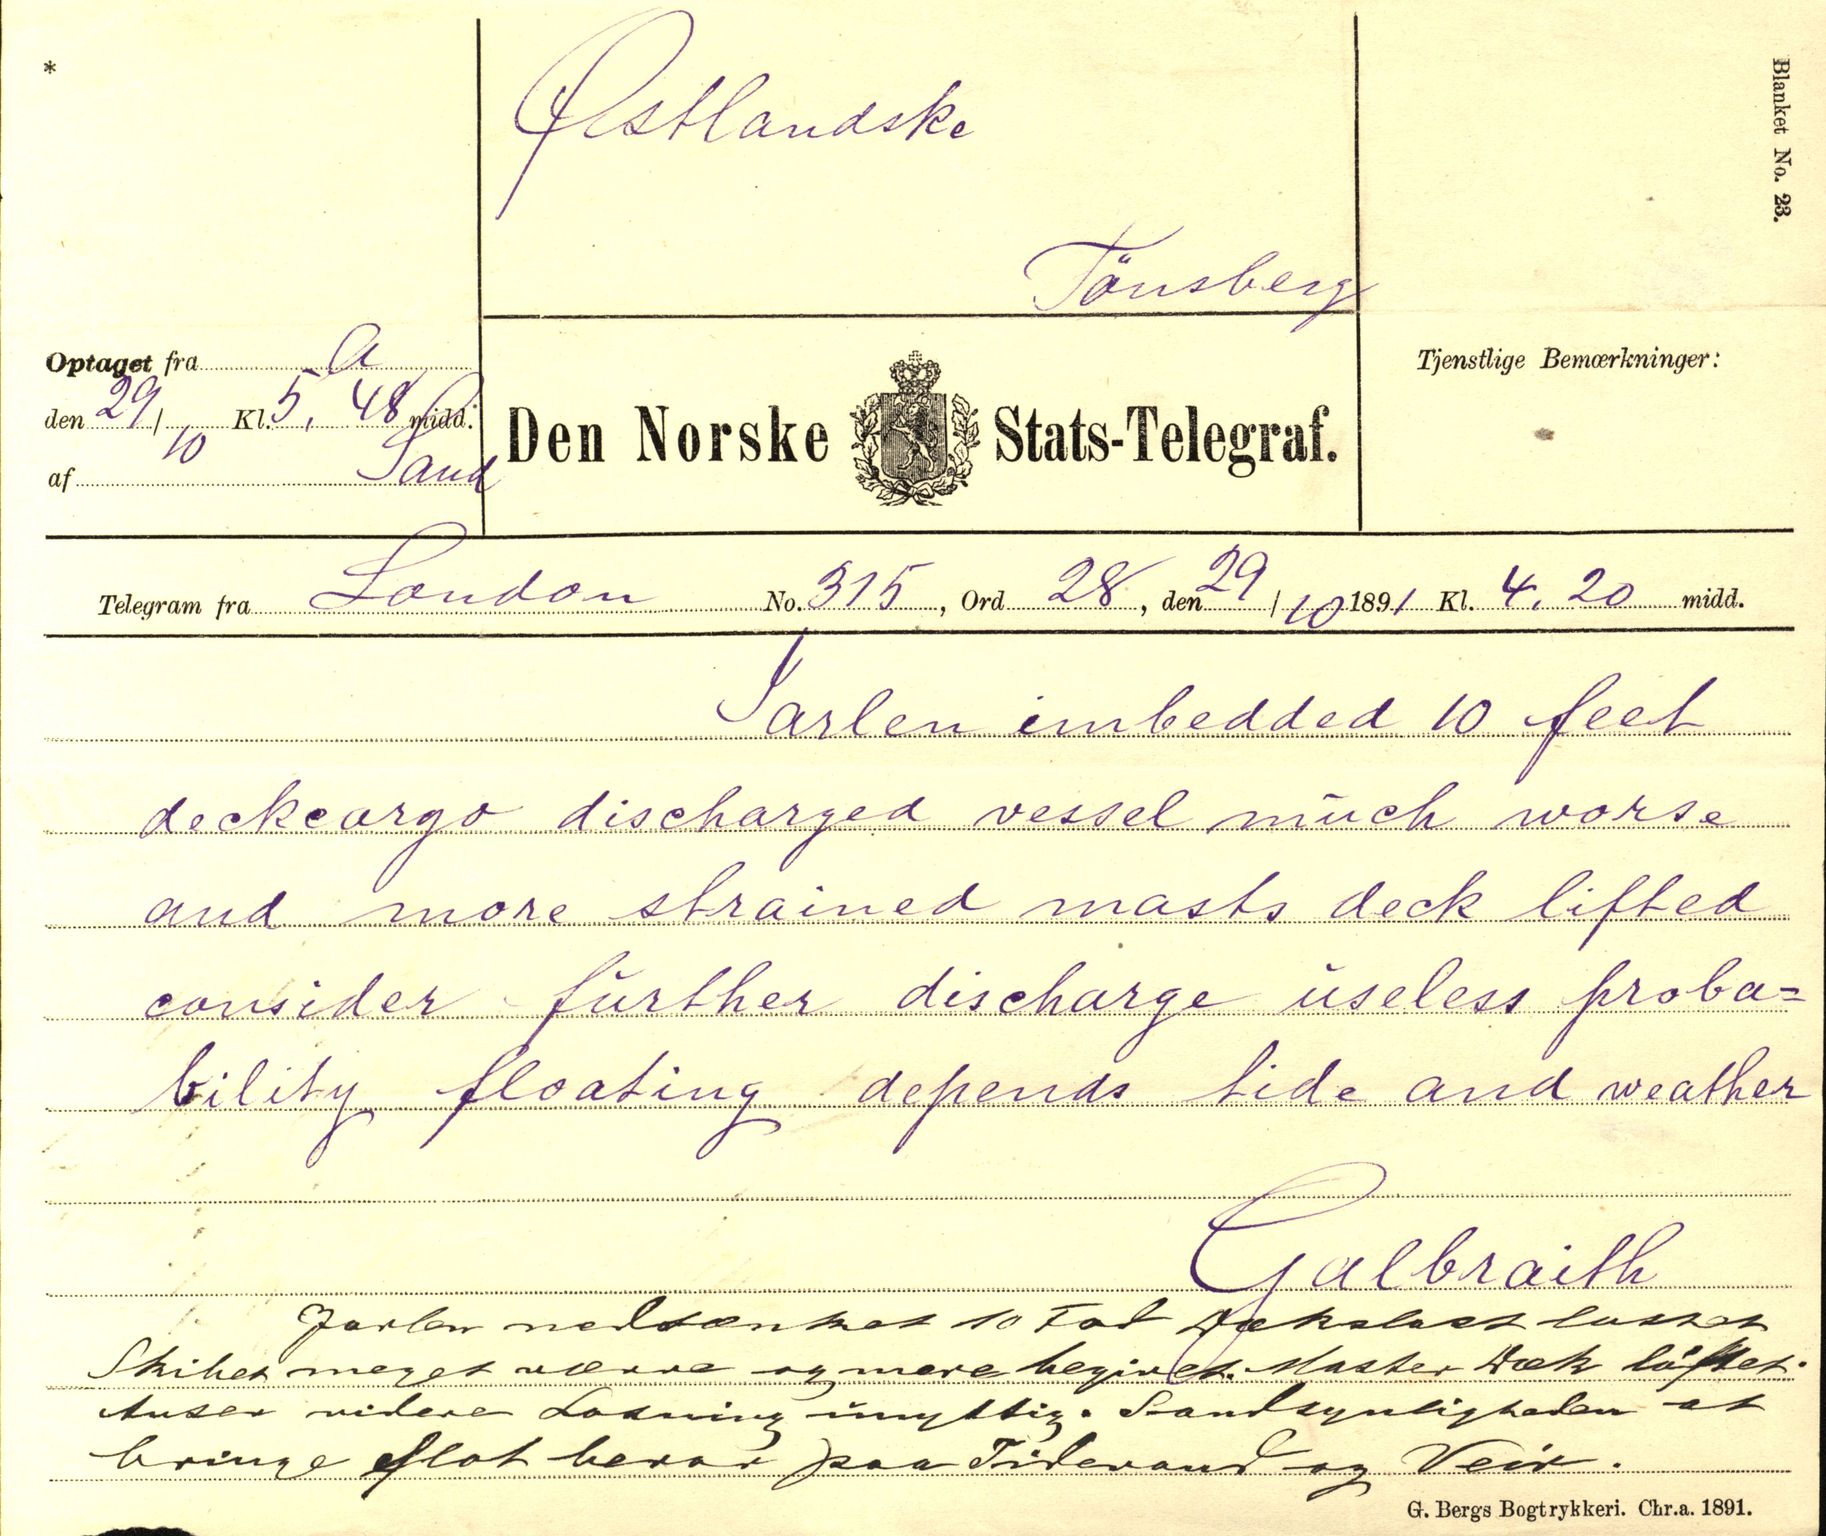 *
Østlandske
Blanket No. 23.
Tönsberg
Optaget fra a
den 29/10 Kl. 5,48 midd.
af Sand
Den Norske Stats-Telegraf.
Tjenstlige Bemærkninger:
Telegram fra London No. 315, Ord 28, den 29/10 1891 Kl. 4.20 midd.
Jarlen imbedded 10 feet
deckcargo discharged vessel much worse
and more strained masts deck lifted
consider further discharge useless proba=
bility floating depends tide and weather
Galbraith
Jarlen nedsænket 10 Fod Dækslast losset
Skibet meget værre og mere begivet. Master Dæk löftet.
Anser videre Losning unyttig. Sandsynligheden at
bringe flot beror paa Tidevand og Veir.
G. Bergs Bogtrykkeri. Chr.a. 1891.